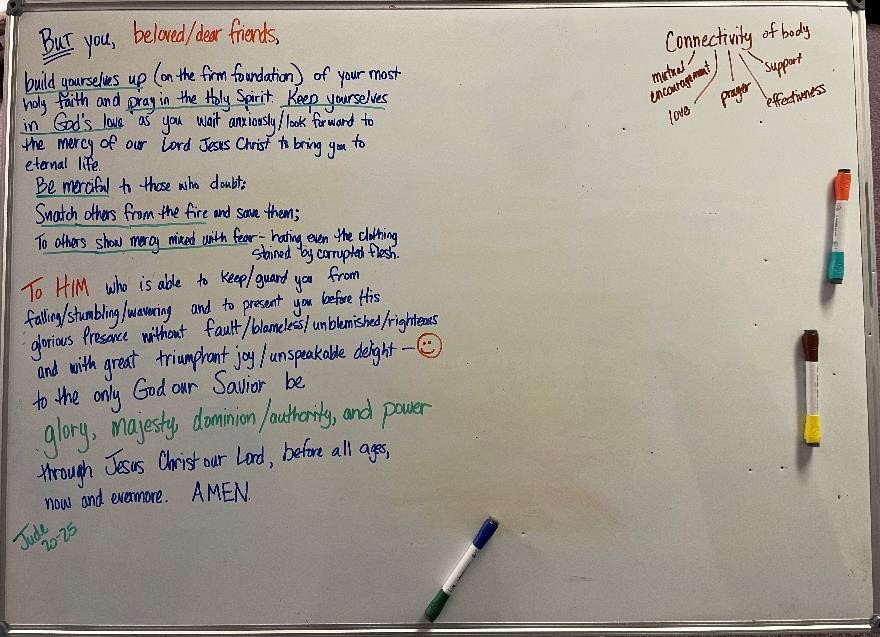 But you, beloved/dear friends,
build yourselves up (on the firm foundation) of your most
holy faith and pray in the Holy Spirit. Keep yourselves
in God's love as you wait anxiously/look forward to
the mercy of our Lord Jesus Christ to bring you to
eternal life.
Be merciful to those who doubt;
Snatch others from the fire and save them;
To others show mercy mixed with fear - hating even the clothing
stained by corrupted flesh.
To HIM who is able to keep/guard you from
falling/stumbling/wavering and to present you before His
glorious Presence without fault/blameless/unblemished/righteous
and with great triumphant joy/unspeakable delight —
to the only God our Savior be
glory, majesty, dominion/authority, and power
through Jesus Christ our Lord, before all ages,
now and evermore. AMEN.
Jude
20-25
Connectivity of body
mutual
encouragement
love
prayer
support
effectiveness